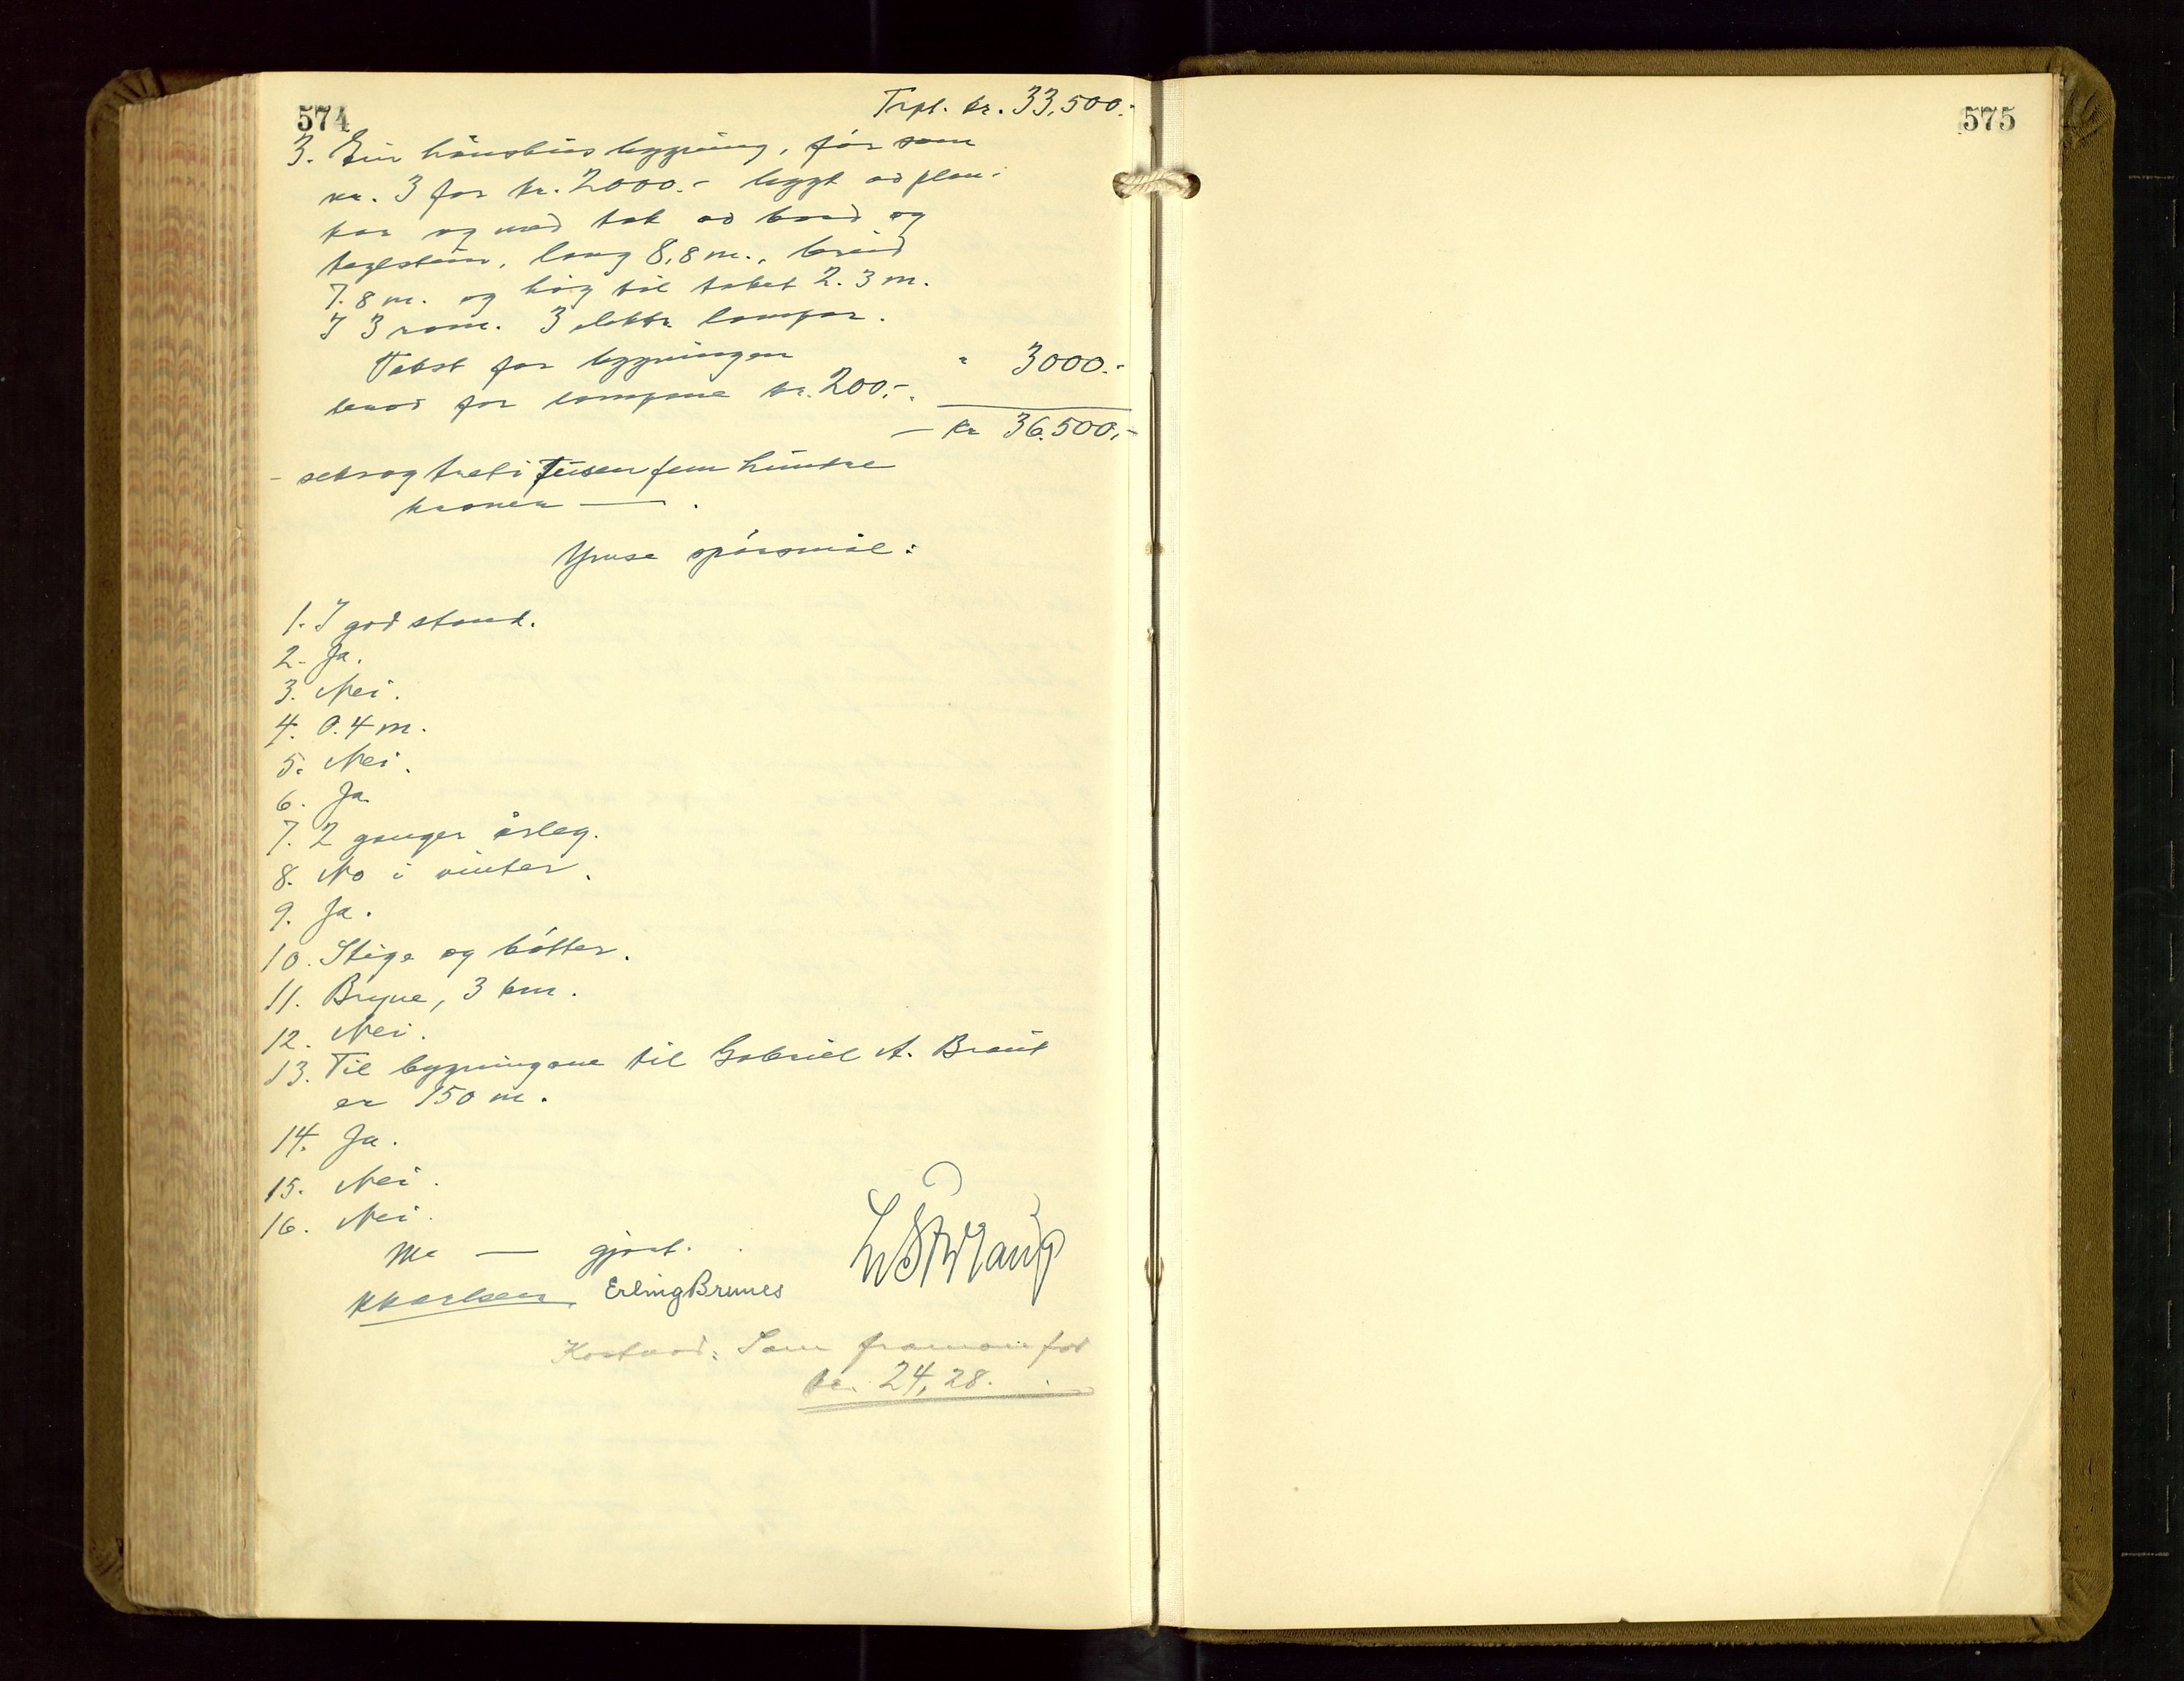 574
Trpt. kr. 33,500.-
3. Ein hønsehus bygning, før som
nr. 3 for kr. 2000.- bygt av plan-
kar og med tak av bord og
taglstein, lang 8,8 m., breid
7.8 m. og høg til taket 2.3 m.
I 3 rom. 3 elektr. lampor.
Takst for bygningen " 3000.-
herav for lampone kr. 200,-.
— kr 36.500,-
- seksogtreti tusen fem hundre
kroner — .
Ymse spørsmål:
1. I god stand.
2. Ja.
3. Nei.
4. 0.4 m.
5. Nei.
6. Ja
7. 2 ganger årleg.
8. No i vinter.
9. Ja.
10. Stige og bøtter.
11. Bryne, 3 km.
12. Nei.
13. Til bygningane til Gabriel A. Braut
er 150 m.
14. Ja.
15. Nei.
16. Nei.
Me — gjort.
Erling Brunes
Kostnad: Som framanfor
kr. 24,28.
575